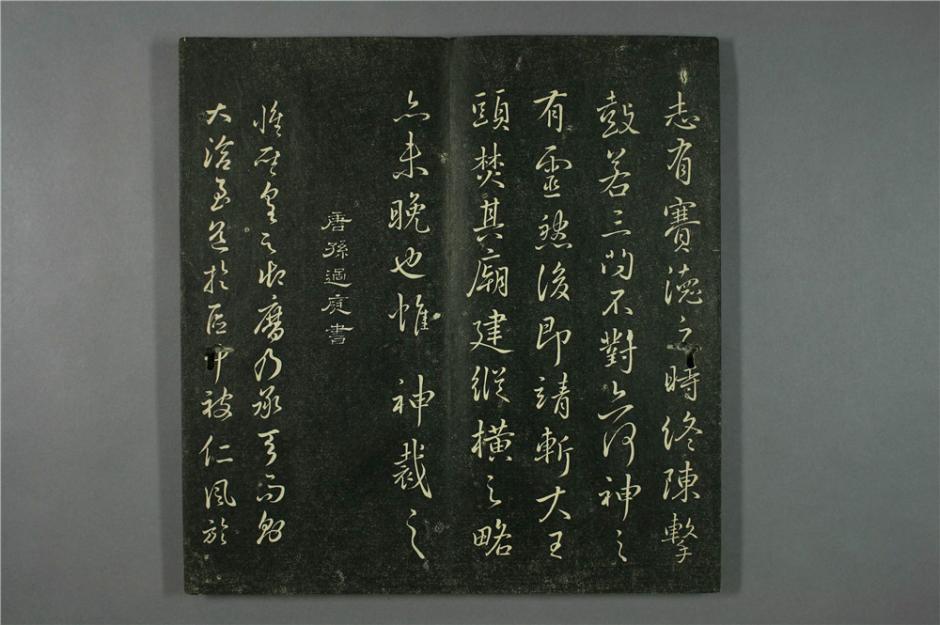 志有賽德之時終陳擊
鼓若三問不對亦何神之
有靈然後即靖斬大王
頭焚其廟建縱橫之略
亦未晚也惟 神裁之
唐孫過庭書
惟皇之膺乃承天而
大洽至道於區中被仁風於